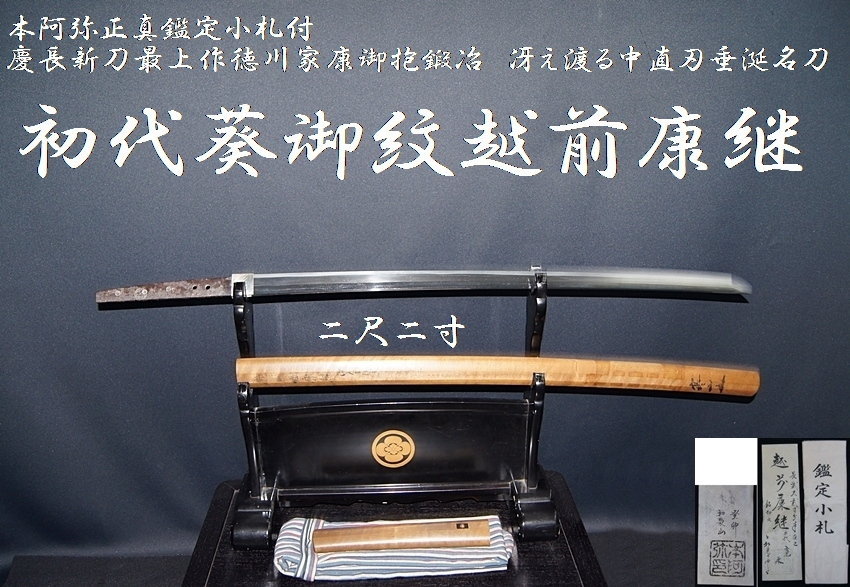 本阿弥正真鑑定小札付
慶長新刀最上作徳川家康御抱鍛冶 冴え渡る中直刃垂涎名刀
初代葵御紋越前康継
二尺二寸
鑑定小札
越前康継